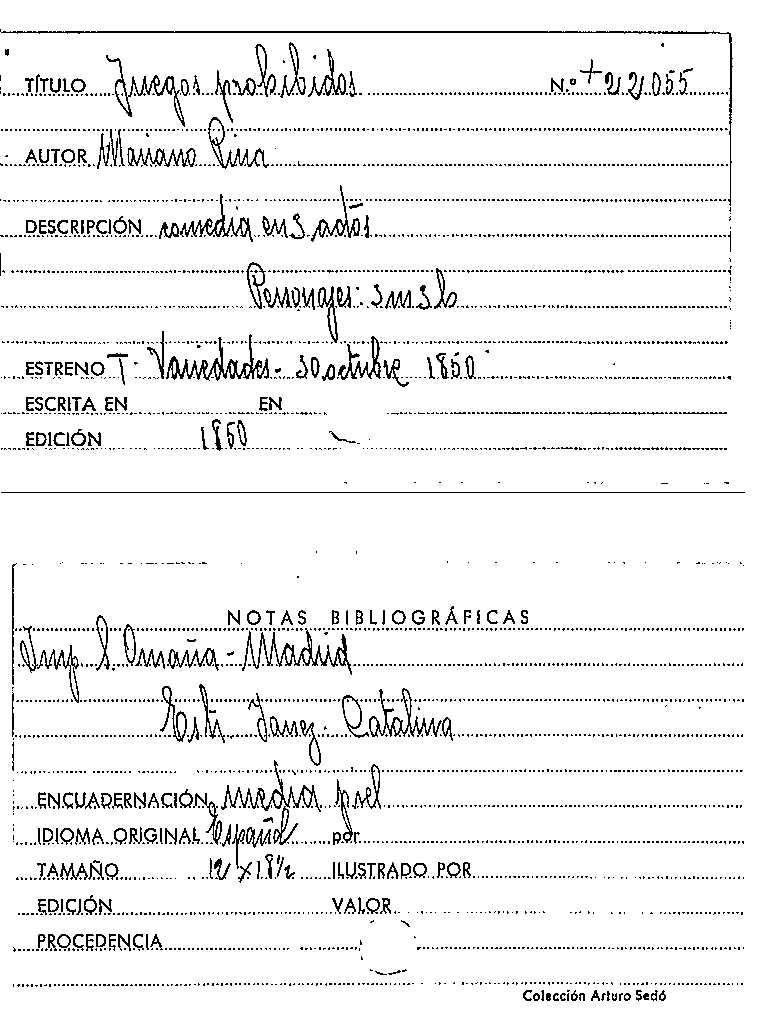 TÍTULO Juegos prohibidos N.º +22055
AUTOR Mariano Pina
DESCRIPCIÓN comedia en 3 actos
Personajes: 3m3h
ESTRENO T. Variedades - 30 octubre 1850
ESCRITA EN EN
EDICIÓN 1850
NOTAS BIBLIOGRÁFICAS
Imp S. Omaña - Madrid
Catalina
ENCUADERNACIÓN media piel
IDIOMA ORIGINAL Español por
TAMAÑO 12 x 18½ ILUSTRADO POR
EDICIÓN VALOR
PROCEDENCIA
Colección Arturo Sedó